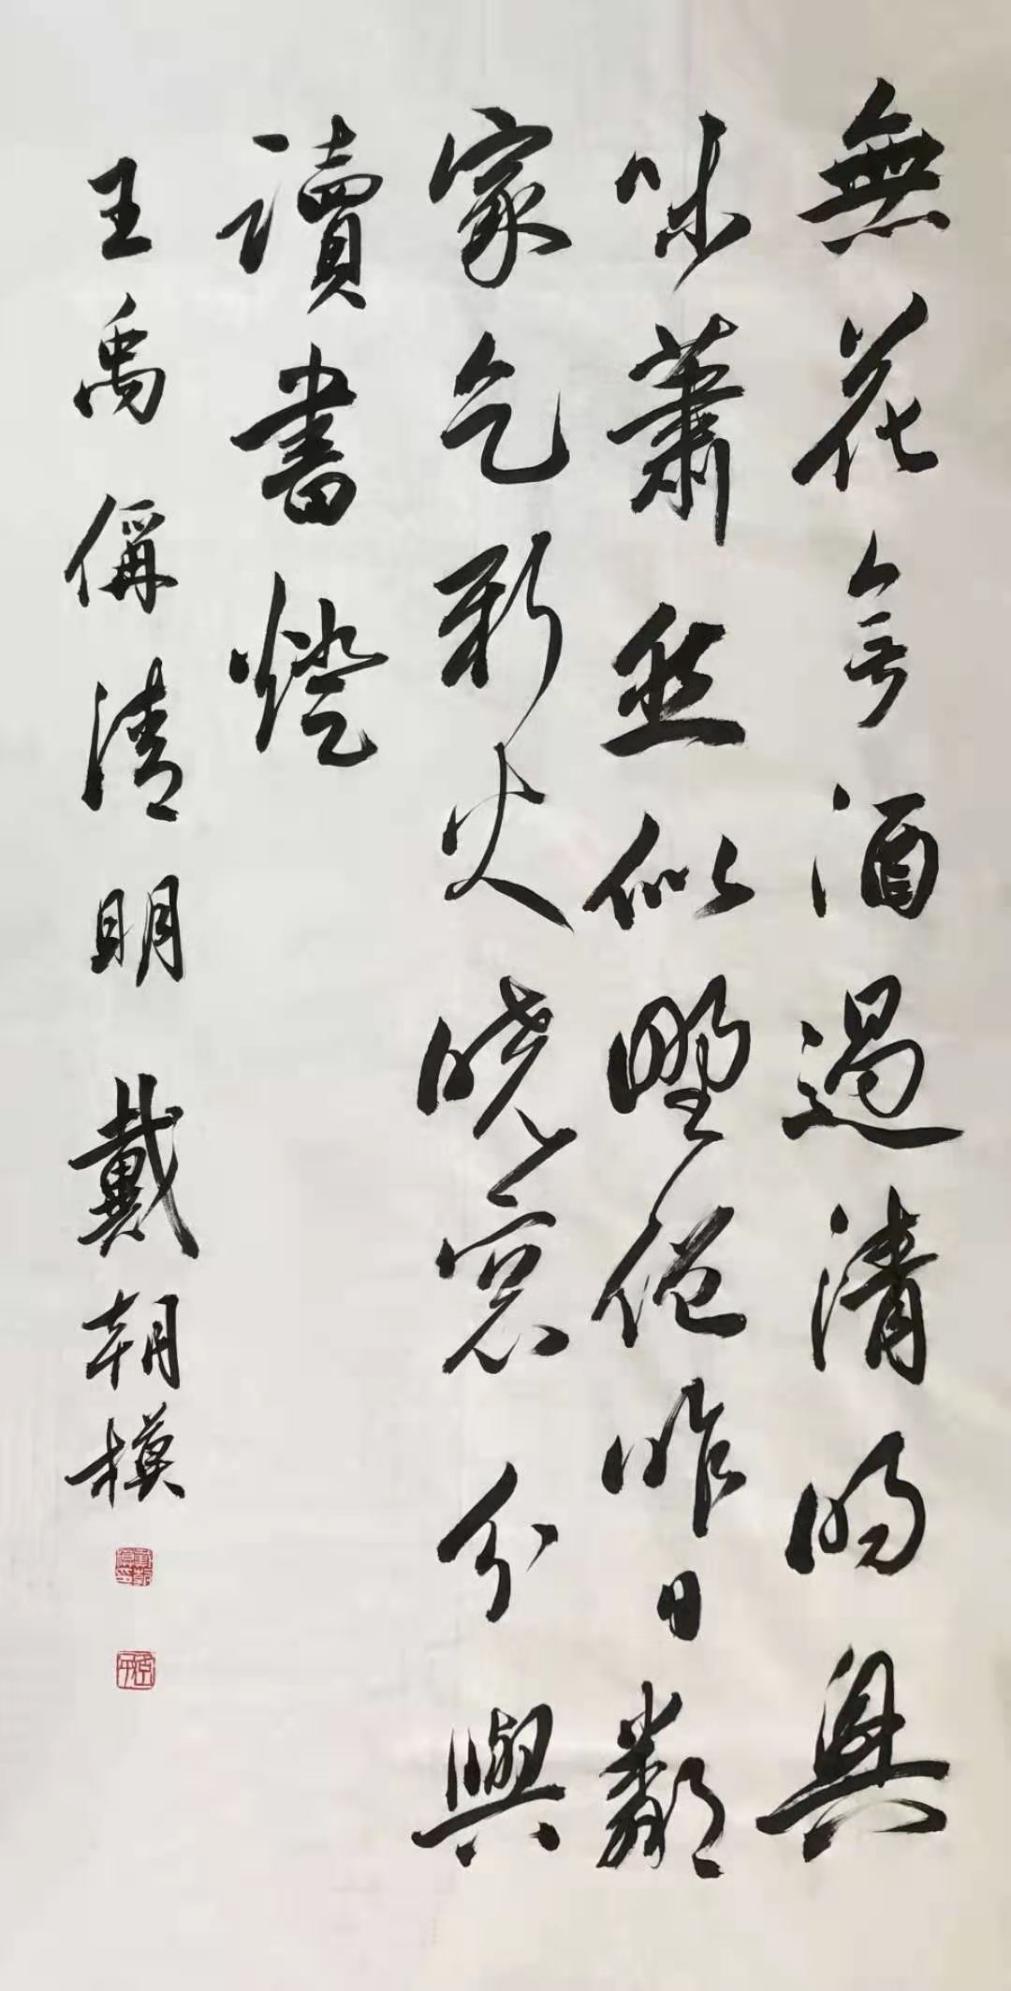 無花無酒過清明興
味蕭然似野僧昨日鄰
家乞新火曉窓分與
讀書燈
王禹偁清明 戴朝模